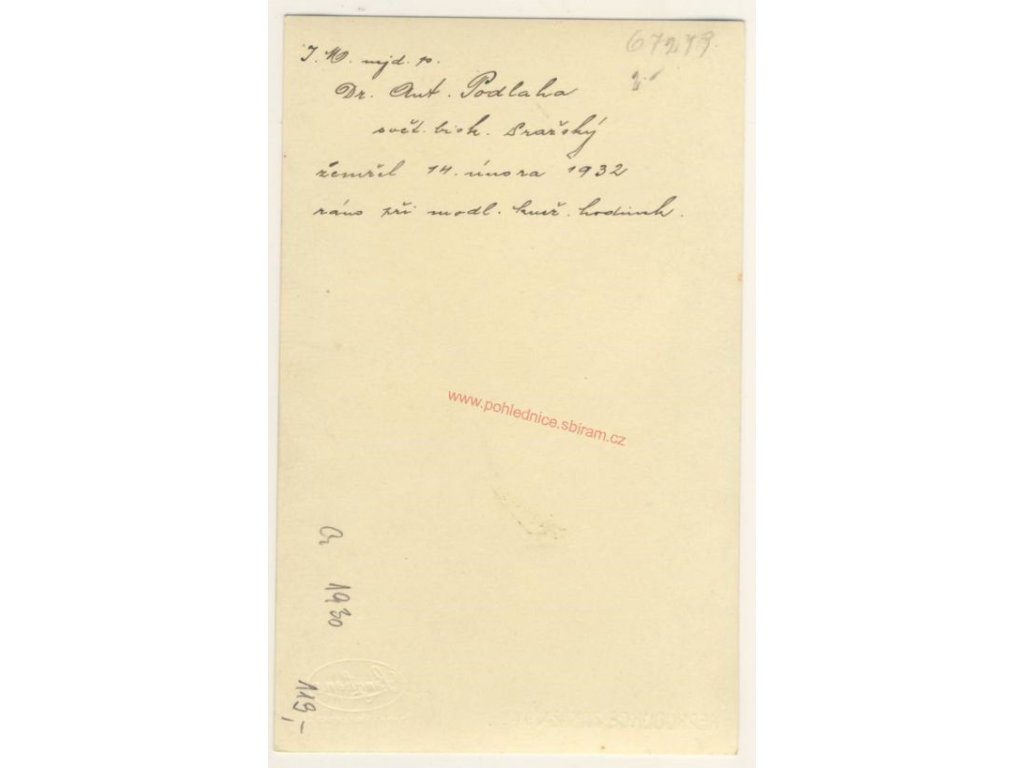 67279.
J. M. nejd. p.
Dr. Ant. Podlaha
svět. bisk. pražský
zemřel 14. února 1932
ráno při modl. kněž. hodinek.
www.pohlednice.sbiram.cz
1930
119,-